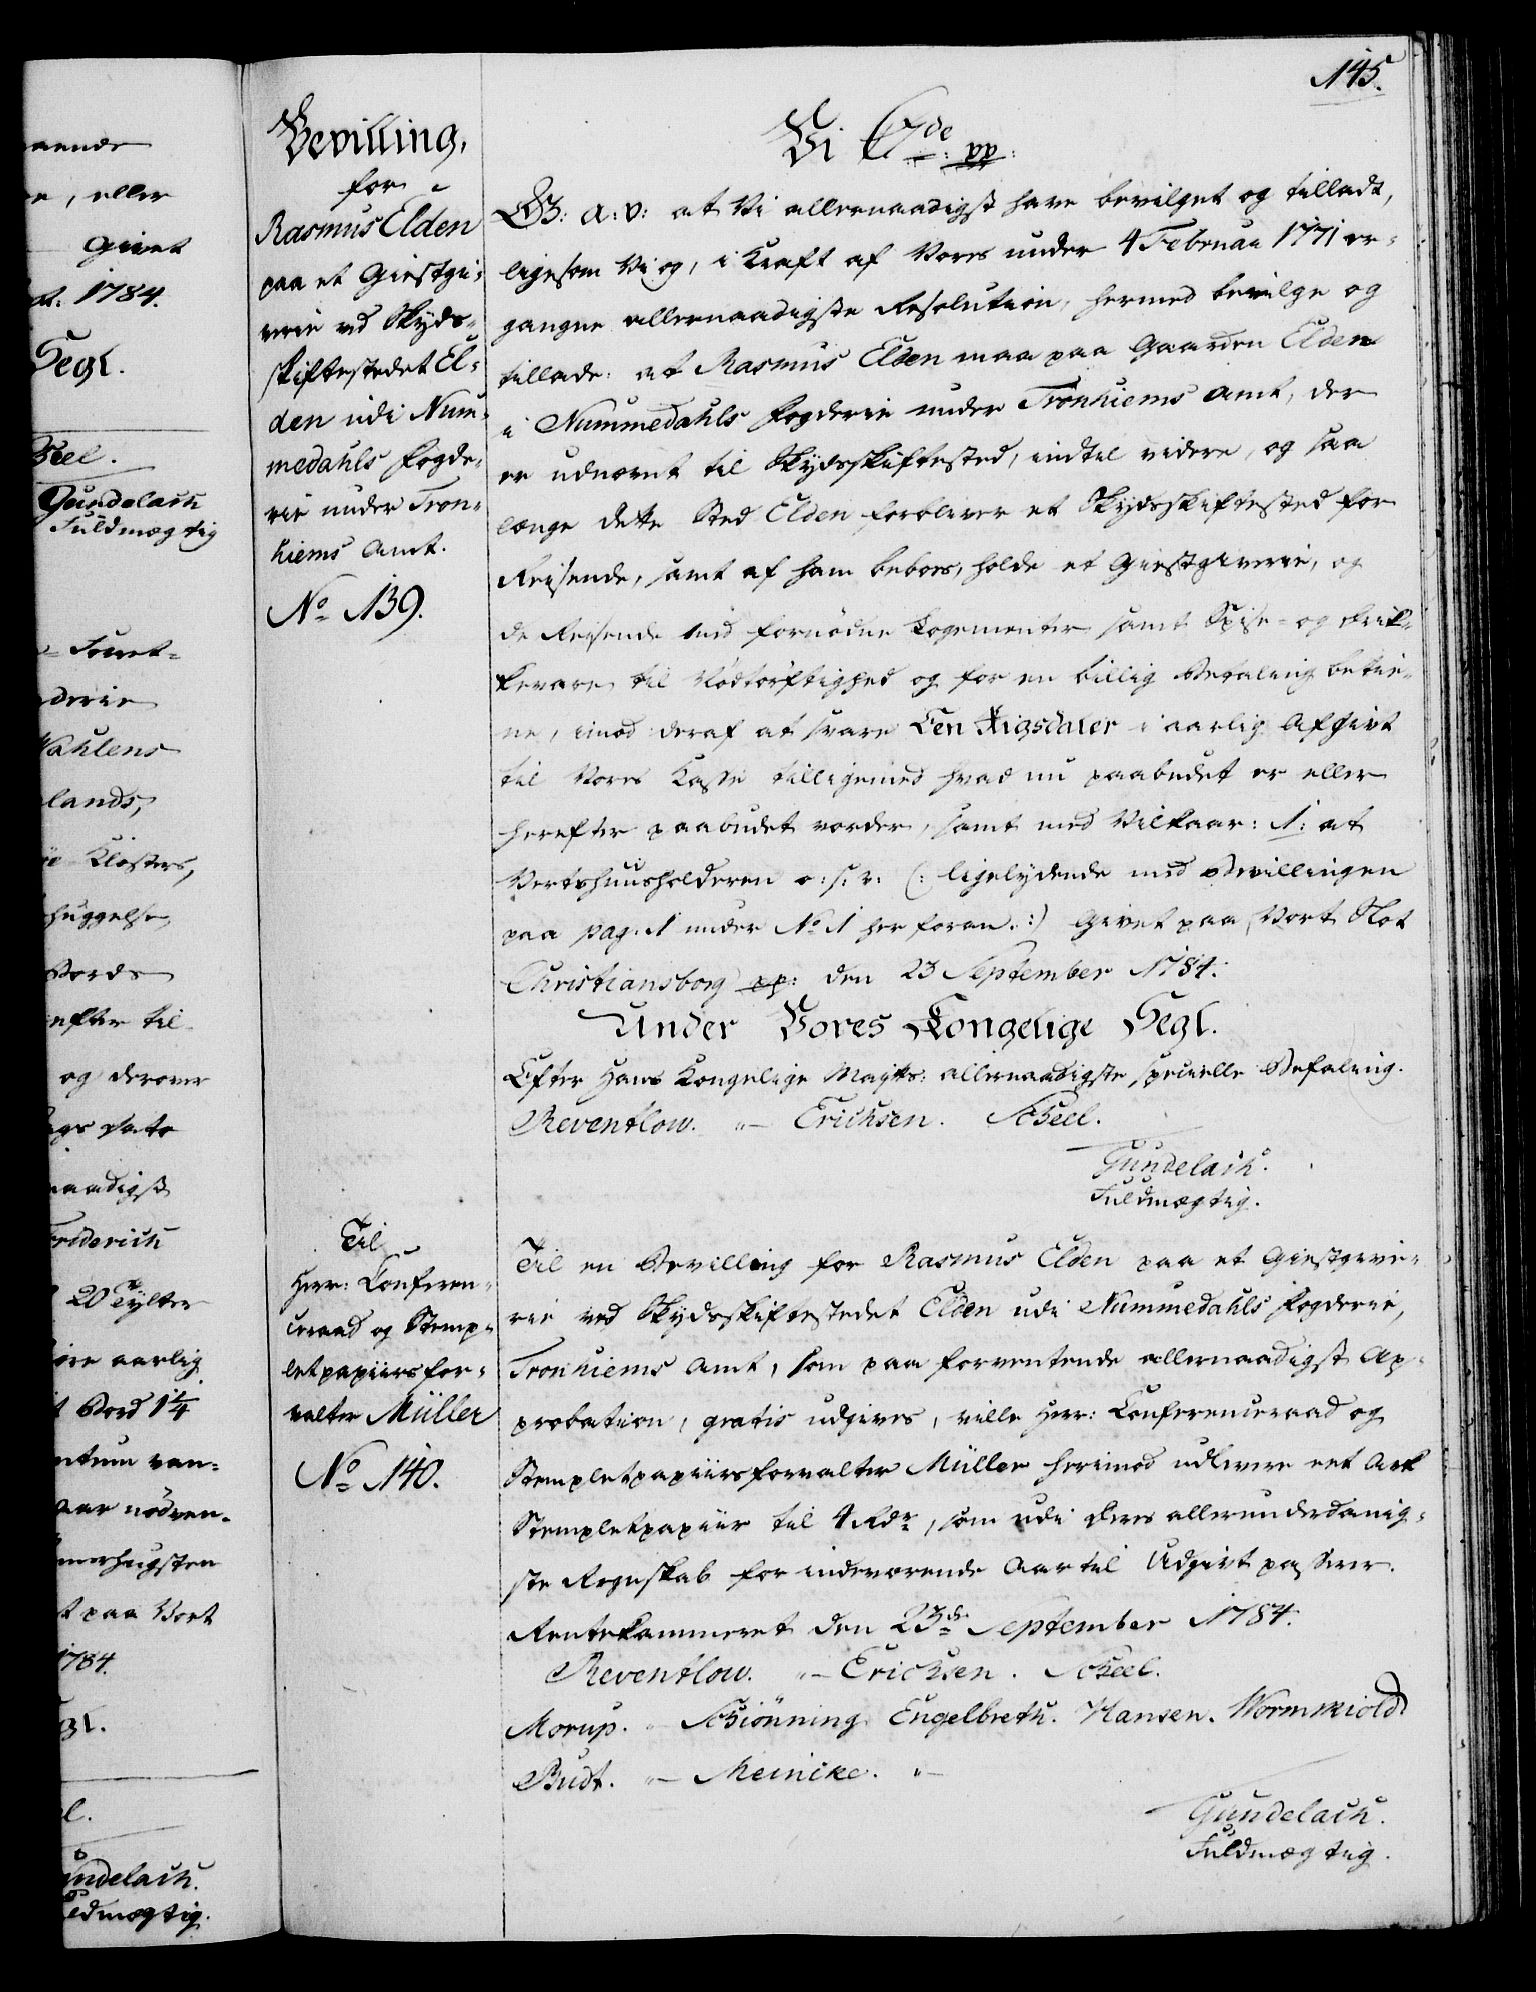 145.
Bevilling,
for
Rasmus Elden
paa et Giestgi-
verie ved Skyds-
skiftestedet El-
den udi Num-
medahls Fogde-
rie under Tron-
hiems Amt.
No 139.
Vi C 7de: pp:
G: a: v: at Vi allernaadigst have bevilget og tilladt,
ligesom Vi og, i Kraft af Vores under 4 Februar 1771 er-
gangne allernaadigste Resolution, hermed bevilge og
tillade: at Rasmus Elden maa paa Gaarden Elden
i Nummedahls Fogderie under Tronhiems Amt, der
er udnævnt til Skydsskiftested, indtil videre, og saa
længe dette Sted Elden forbliver et Skydsskiftested for
Reisende, samt af ham beboes, holde et Giestgiverie, og
de Reisende med fornødne Logementer samt Spise- og Drik-
kevare, til Nødtørftighed og for en billig Betaling betie-
ne, imod deraf at svare Een Rigsdaler i aarlig Afgivt
til Vores Kasse tilligemed hvad nu paabudet er eller
herefter paabudet vorder, samt med Vilkaar: 1: at
Vertshuusholderen o: s: v: (: ligelydende med Bevillingen
paa pag. 1 under No 1 her foran. :) Givet paa Vort Slot
Christiansborg pp: den 23 September 1784.
Under Vores Kongelige Segl.
Efter Hans Kongelige Majts: allernaadigste specielle Befaling.
Reventlow. " Erichsen. Scheel.
Gundelach.
Fuldmægtig.
Til
Herr: Conferen-
ceraad og Stemp-
letpapiirsfor-
valter Müller
No 140.
Til en Bevilling for Rasmus Elden paa et Giestgive-
rie ved Skydsskiftestedet Elden udi Nummedahls Fogderie,
Tronhiems Amt, som paa forventende allernaadigst Ap-
probation, gratis udgives, ville Herr: Conferenceraad og
Stempletpapiirsforvalter Müller herimod udlevere eet Ark
Stempletpapiir til 4 Rdr, som udi Deres allerunderdanig-
ste Regnskab for indeværende Aar til Udgivt passerer.
Rentekammeret den 23de September 1784.
Reventlow. " Erichsen. Scheel.
Morup. " Schiönning Engelbreth. Hansen. Wormskiold
Budt. " Meinicke. "
Gundelach.
Fuldmægtig.